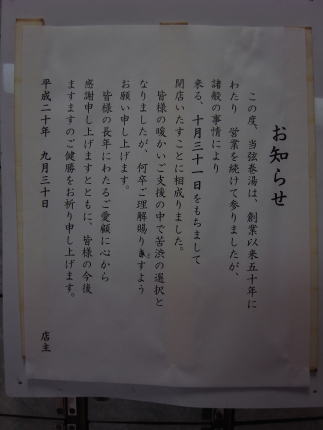 お知らせ
この度、当弦巻湯は、創業以来五十年に
わたり 営業を続けて参りましたが、
諸般の事情により
来る、十月三十一日をもちまして
閉店いたすことに相成りました。
皆様の暖かいご支援の中で苦渋の選択と
なりましたが、何卒ご理解賜りますよう
お願い申し上げます。
皆様の長年にわたるご愛顧に心から
感謝申し上げますとともに、皆様の今後
ますますのご健勝をお祈り申し上げます。
平成二十年 九月三十日
店主